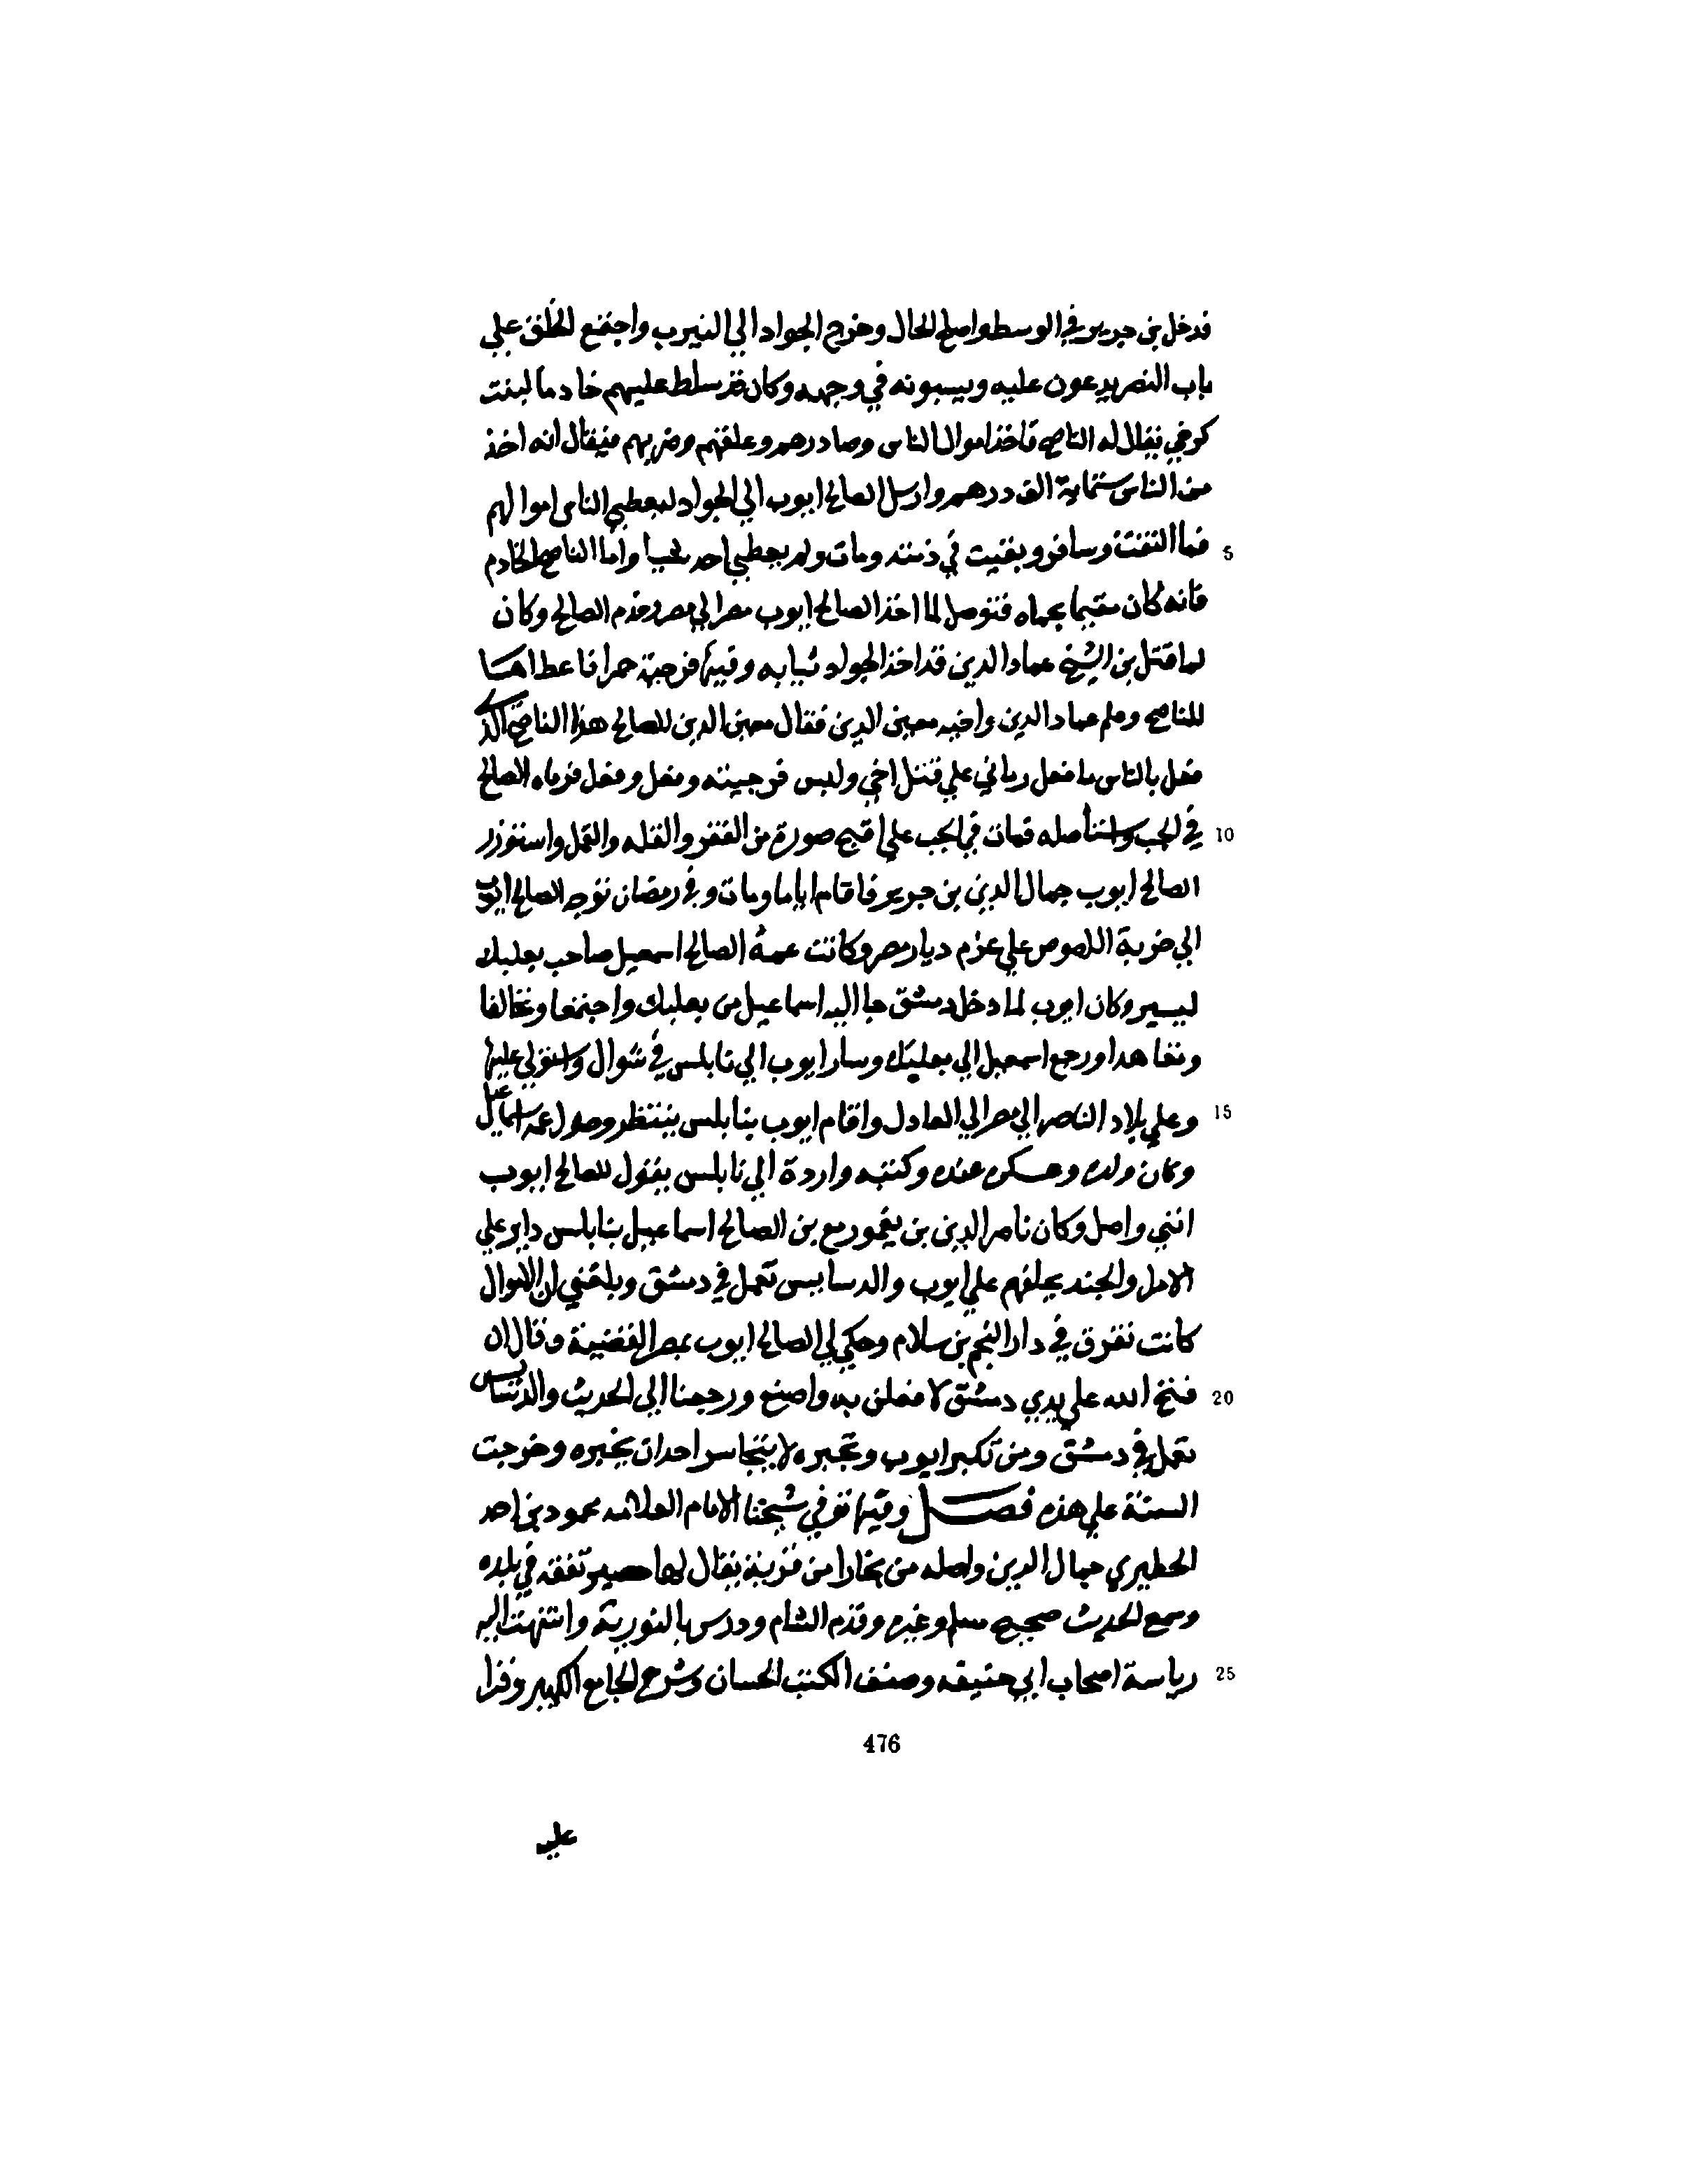 فدخل بن جرير في الوسط واصلح الحال وخرج الجواد الي النيرب واجتمع الخلق علي
باب النصر يدعون عليه ويسبونه في وجهه وكان قد سلط عليهم خادما لبنت
كرجي يقال له الناصح فاخذ اموال الناس وصادرهم وعلقهم وضربهم فيقال انه اخذ
من الناس ستماية الف درهم وارسل الصالح ايوب الي الجواد ليعطي الناس اموالهم
5 فما التفت وسافر وبقيت في ذمته ومات ولم يعطي احد شيا واما الناصح الخادم
فانه كان مقيما بحماه فتوصل لما اخذ الصالح ايوب مصر الي مصر وخدم الصالح وكان
لما قتل بن الشيخ عماد الدين قد اخذ الجواد ثيابه وفيها فرجية حمرا فاعطاها
للناصح وعلم عماد الدين واخيه معين الدين فقال معين الدين للصالح هذا الناصح الذي
فعل بالناس ما فعل رماني علي قتل اخي ولبس فرجيته وفعل وفعل فرماه الصالح
10 في الجب واستأصله فمات في الجب علي اقبح صورة من الفقر والقله والقمل واستوزر
الصالح ايوب جمال الدين بن جرير فاقام اياما ومات وفي رمضان توجه الصالح ايوب
الي خربة اللصوص علي عزم ديار مصر وكانت عمه الصالح اسمعيل صاحب بعلبك
ليسير وكان ايوب لما دخل دمشق جا اليه اسماعيل من بعلبك واجتمعا وتحالفا
وتعاهدا ورجع اسمعيل الي بعلبك وسار ايوب الي نابلس في شوال واستولي عليها
15 وعلي بلاد الناصر الي مصر الي العادل واقام ايوب بنابلس ينتظر وصول عمه اسماعيل
وكان ولده وعسكره عنده وكتبه واردة الي نابلس يقول للصالح ايوب
انني واصل وكان ناصر الدين بن يغمور مع بن الصالح اسماعيل بنابلس داير علي
الامرا والجند يحلفهم علي ايوب والدسايس تعمل في دمشق وبلغني ان الاموال
كانت تفرق في دار النجم بن سلام وحكي لي الصالح ايوب بمصر القضية وقال ان
20 فتح الله علي يدي دمشق لافعلن به واصنع ورجعنا الي الحديث والدسايس
تعمل في دمشق ومن تكبر ايوب وتجبره لا يتجاسر احد ان يخبره وخرجت
السنة علي هذه فصل وفيها توفي شيخنا الامام العلامه محمود بن احمد
الحطيري جمال الدين واصله من بخارا من قرية يقال لها حصير تفقه في بلده
وسمع الحديث صحيح مسلم وغيره وقدم الشام ودرس بالنورية وانتهت اليه
25 رياسة اصحاب ابي حنيفه وصنف الكتب الحسان وشرح الجامع الكبير وقرا
476
عليه